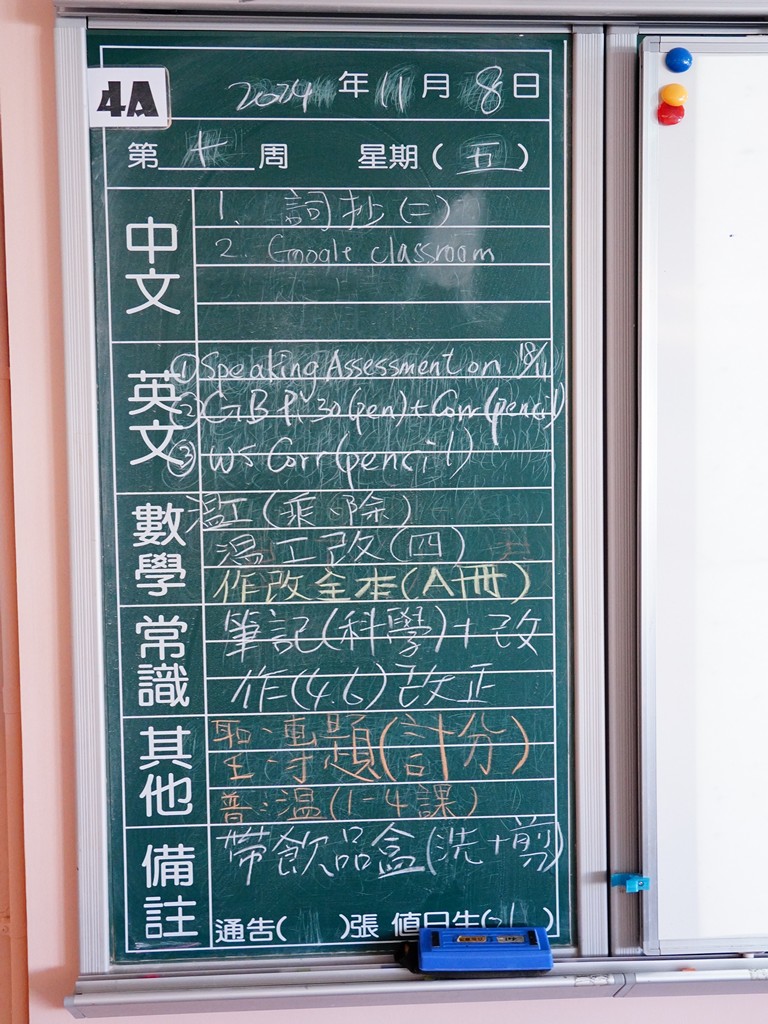 4A
2024年11月8日
第十周 星期(五)
中文
1. 詞抄(二)
2. Google classroom
英文
①Speaking Assessment on 18/11
②GBP.30(pen)+Corr(pencil)
③WS Corr(pencil)
數學
工(乘、除)
工改(四)
作改全本(A冊)
常識
筆記(科學)+改
作(4.6)改正
其他
題(計分)
普:溫(1-4課)
備註
帶飲品盒(洗+剪)
通告( )張 值日生( )